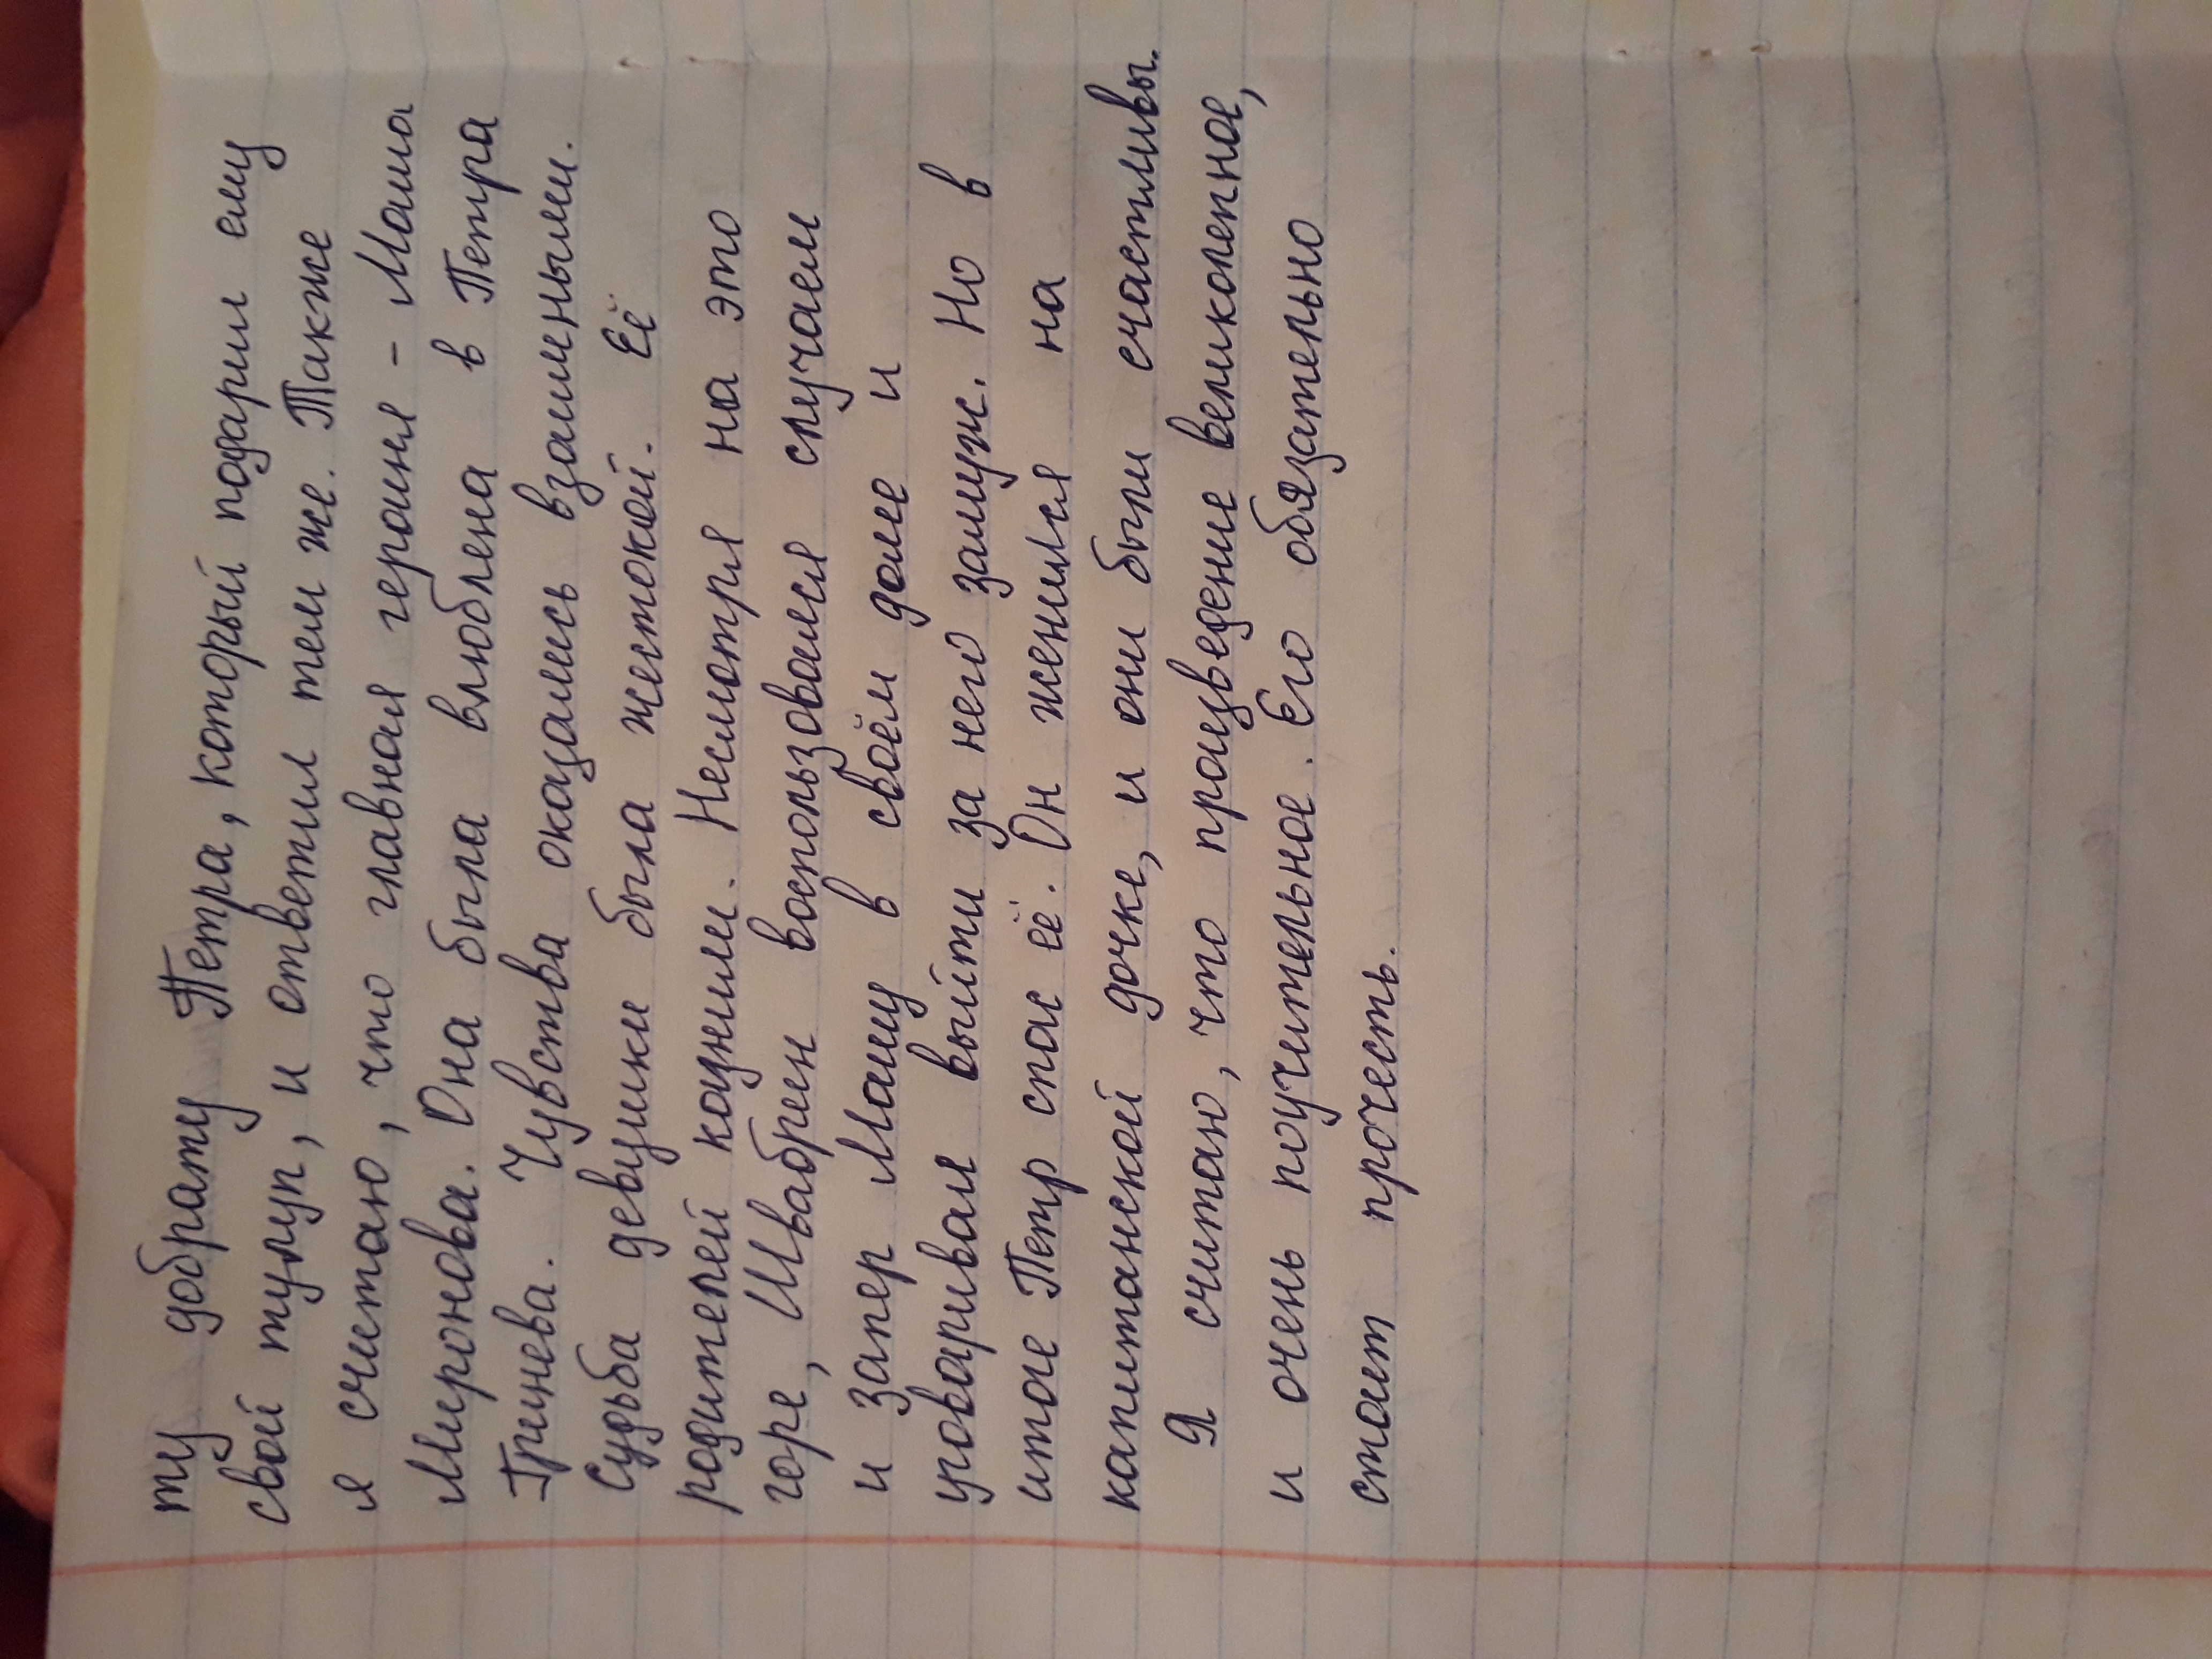 ту доброту Петра, который подарил ему
свой тулуп, и ответил тем же. Также
я считаю, что главная героиня - Маша
Миронова. Она была влюблена в Петра
Гринева. Чувства оказались взаимеными.
Судьба девушки была жестокой. Её
родителей казнили. Несмотря на это
горе, Швабрин воспользовался случаем
и запер Машу в своём доме и
уговаривал выйти за него замуж. Но в
итоге Петр спас её. Он женился на
капитанской дочке, и они были счастливы.
Я считаю, что произведение великолепное,
и очень поучительное. Его обязательно
стоит прочесть.